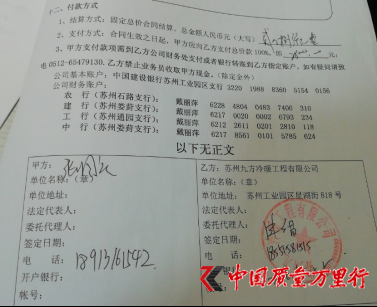 十二、付款方式
1、结算方式：固定总价合同结算，总金额人民币元（大写）
2、支付方式：合同生效之日起，甲方应向乙方支付总价款100%，即
3、甲方支付款项需到乙方公司财务处支付或者银行转账到乙方指定账户，如有疑问请致
电0512-65479130，乙方禁止业务员收取甲方现金。（除定金外）
公司基本账户：中国建设银行苏州工业园区支行 3220 1988 8360 5154 0156
公司财务账户：
农 行（苏州石路支行） 戴丽萍 6228 4804 0483 7400 310
建 行（苏州娄葑支行） 戴丽萍 6217 0020 0002 6793 234
工 行（苏州通园支行） 戴丽萍 6212 2611 0201 2810 118
中 行（苏州娄葑支行） 戴丽萍 6217 8561 0101 5785 624
以下无正文
甲方：
单位名称：（章）
单位地址：
法定代表人：
委托代理人：
签定日期：
电 话：18913161542
开户银行：
帐号：
乙方：苏州九方冷暖工程有限公司
单位名称：（章）
单位地址：苏州工业园区星湖街 818 号
法定代表人：
委托代理人：
签定日期：
电 话：
开户银行
帐号：
中国质量万里行